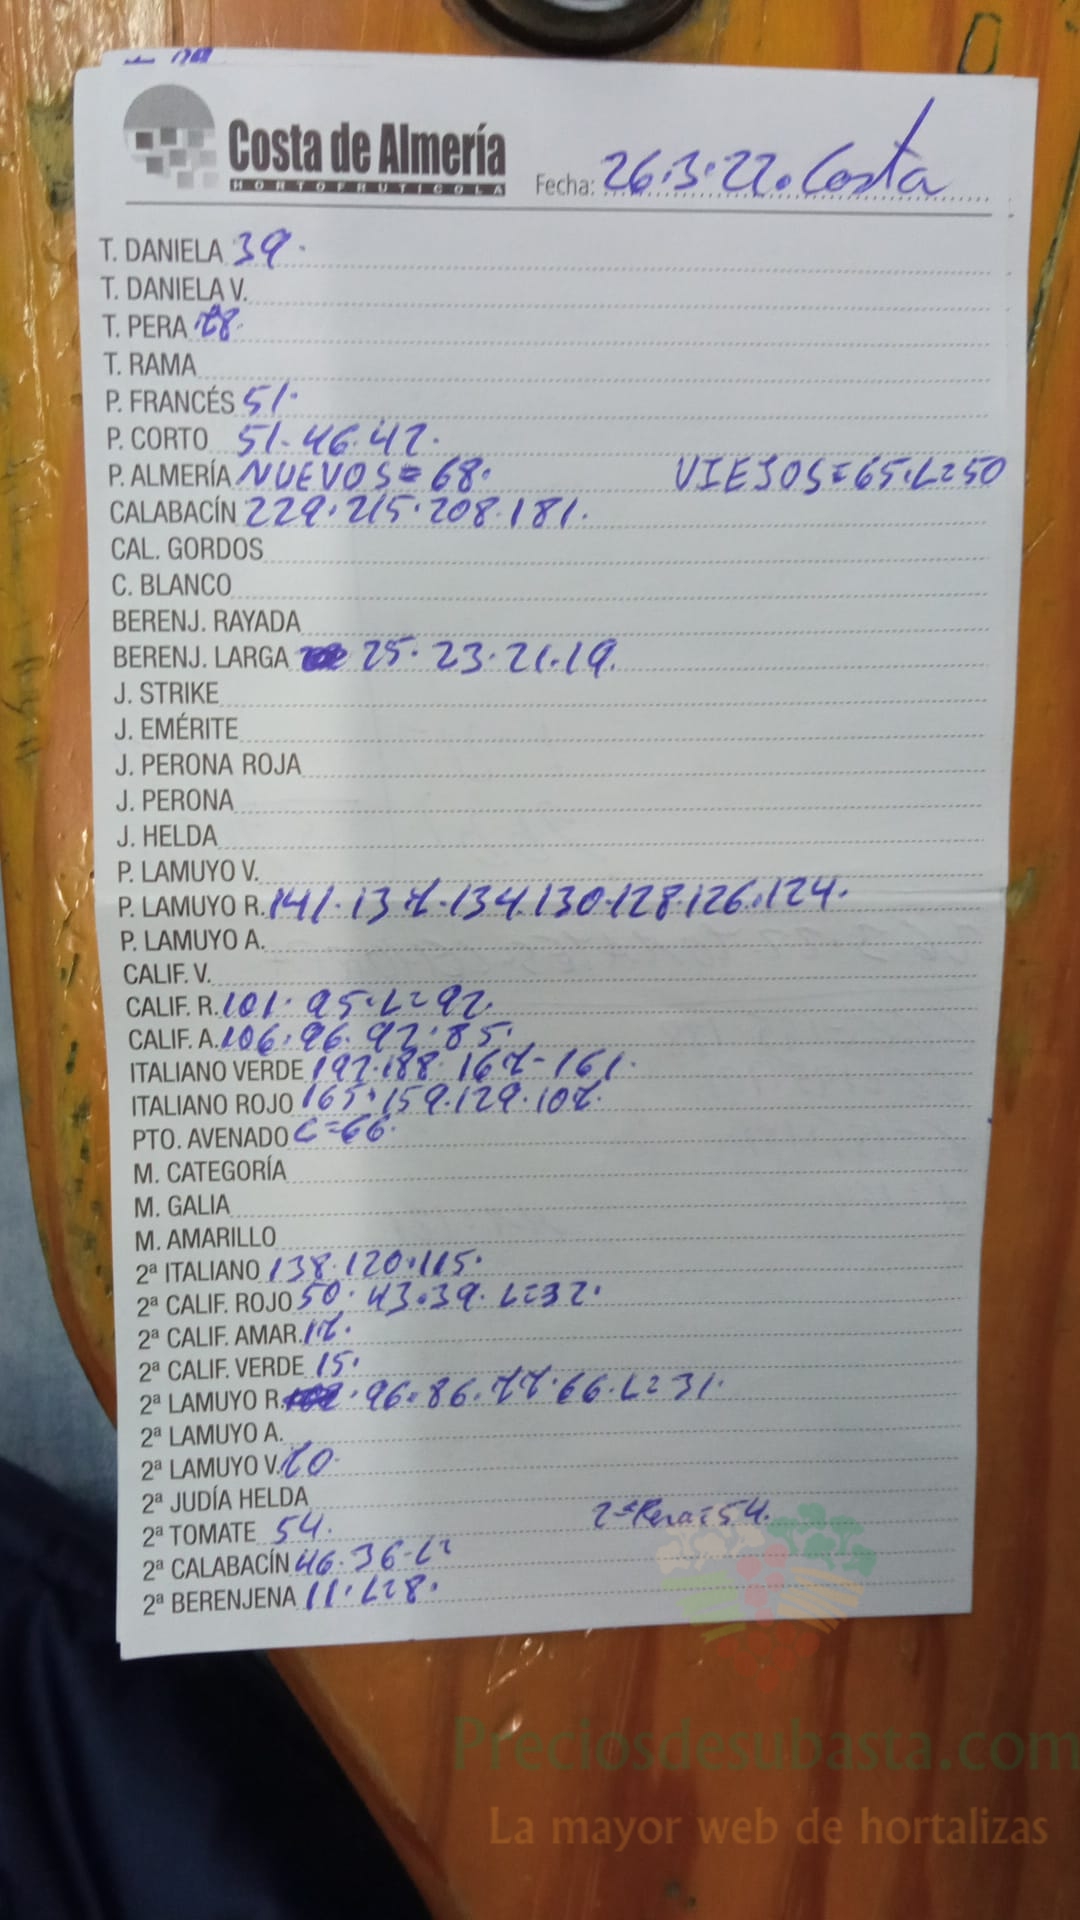 Costa de Almería
HORTOFRUTICOLA
Fecha: 26.3.22. Costa
T. DANIELA 39.
T. DANIELA V.
T. PERA 78.
T. RAMA
P. FRANCÉS 51.
P. CORTO 51-46.42.
P. ALMERÍA NUEVOS=68. VIEJOS=65.L=50
CALABACÍN 229.215.208.181.
CAL. GORDOS
C. BLANCO
BERENJ. RAYADA
BERENJ. LARGA 25.23.21.19.
J. STRIKE
J. EMÉRITE
J. PERONA ROJA
J. PERONA
J. HELDA
P. LAMUYO V.
P. LAMUYO R. 141.137.134.130.128.126.124.
P. LAMUYO A.
CALIF. V.
CALIF. R. 101.95.L=92.
CALIF. A. 106.96.92.85.
ITALIANO VERDE 192.188.167-161.
ITALIANO ROJO 165.159.129.107.
PTO. AVENADO C=66.
M. CATEGORÍA
M. GALIA
M. AMARILLO
2ª ITALIANO 138.120.115.
2ª CALIF. ROJO 50.43.39.L=32.
2ª CALIF. AMAR. 17.
2ª CALIF. VERDE 15.
2ª LAMUYO R. .96.86.77.66.L=31.
2ª LAMUYO A.
2ª LAMUYO V. 70.
2ª JUDÍA HELDA
2ª TOMATE 54. 2ª Pera=54.
2ª CALABACÍN 46.36-L=
2ª BERENJENA 11.L=8.
Preciosdesubasta.com
La mayor web de hortalizas